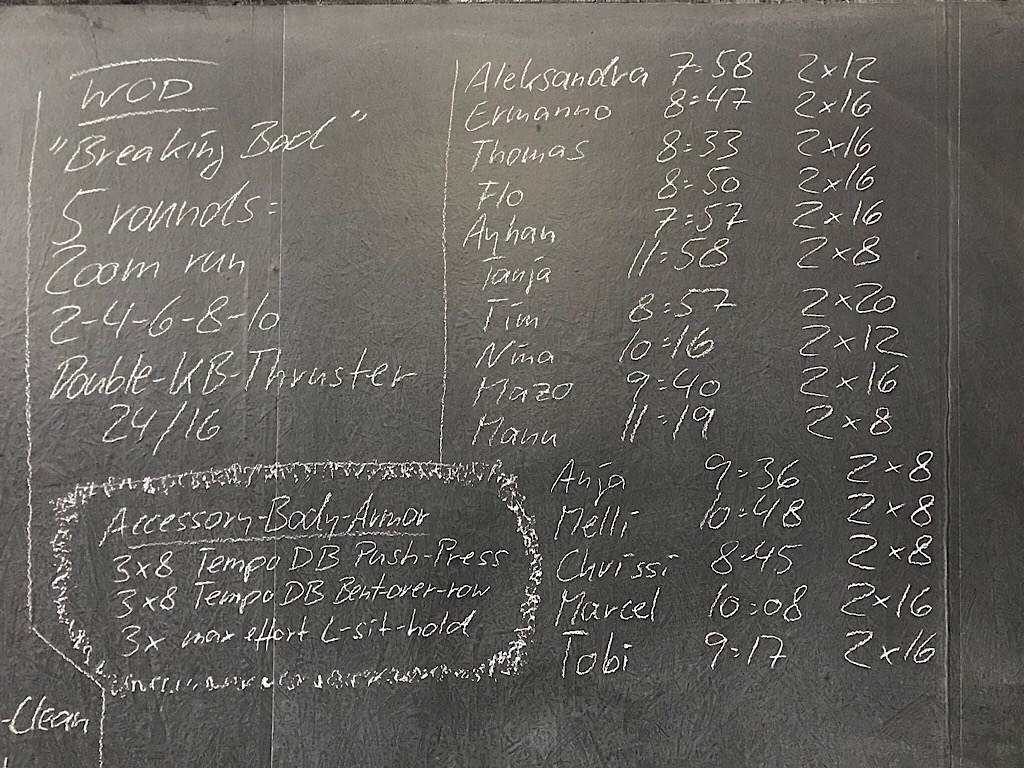 WOD
"Breaking Bad"
5 rounds:
200m run
2-4-6-8-10
Double-KB-Thruster
24/16
Accessory-Body-Armor
3x8 Tempo DB Push-Press
3x8 Tempo DB Bent-over-row
3x max effort L-sit-hold
-Clean
Aleksandra 7:58 2x12
Ermanno 8:47 2x16
Thomas 8:33 2x16
Flo 8:50 2x16
Ayhan 7:57 2x16
Tanja 11:58 2x8
Tim 8:57 2x20
Nina 10:16 2x12
Mazo 9:40 2x16
Manu 11:19 2x8
Anja 9:36 2x8
Melli 10:48 2x8
Chrissi 8:45 2x8
Marcel 10:08 2x16
Tobi 9:17 2x16